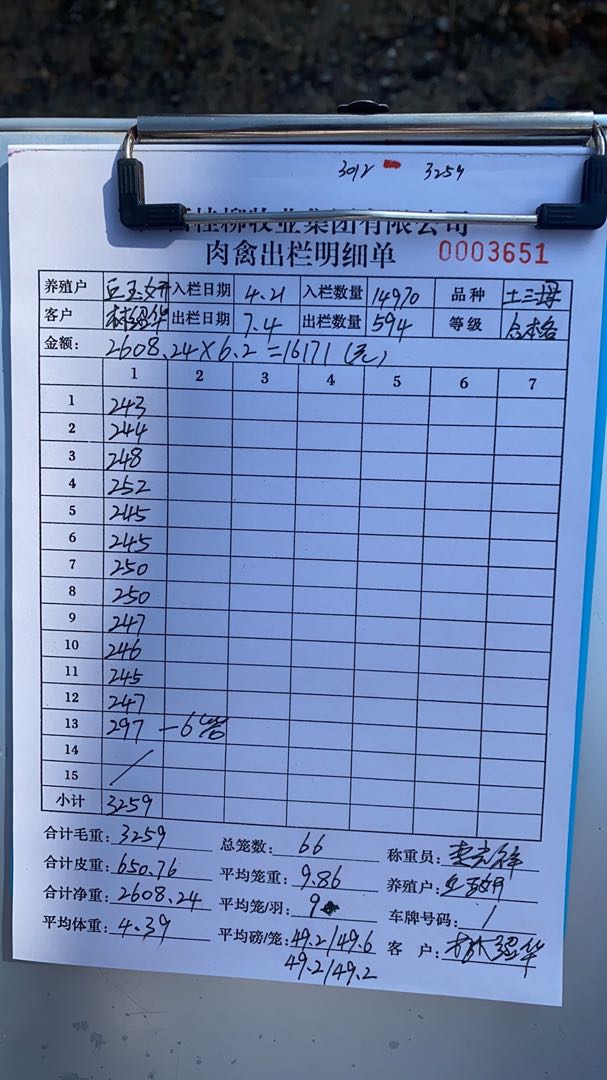 3012 3259
桂柳牧业集团有限公司
肉禽出栏明细单 0003651
养殖户 入栏日期 4.21 入栏数量 14970 品种 土三号
客户 林绍华 出栏日期 7.4 出栏数量 594 等级 合格
金额: 2608.24×6.2=16171(元)
1 2 3 4 5 6 7
1 243
2 244
3 248
4 252
5 245
6 245
7 250
8 250
9 247
10 246
11 245
12 247
13 297 -6笼
14
15 /
小计 3259
合计毛重: 3259 总笼数: 66 称重员:
合计皮重: 650.76 平均笼重: 9.86 养殖户:
合计净重: 2608.24 平均笼/羽: 9 车牌号码: /
平均体重: 4.39 平均磅/笼: 49.2/49.6 客户: 林绍华
49.2/49.2